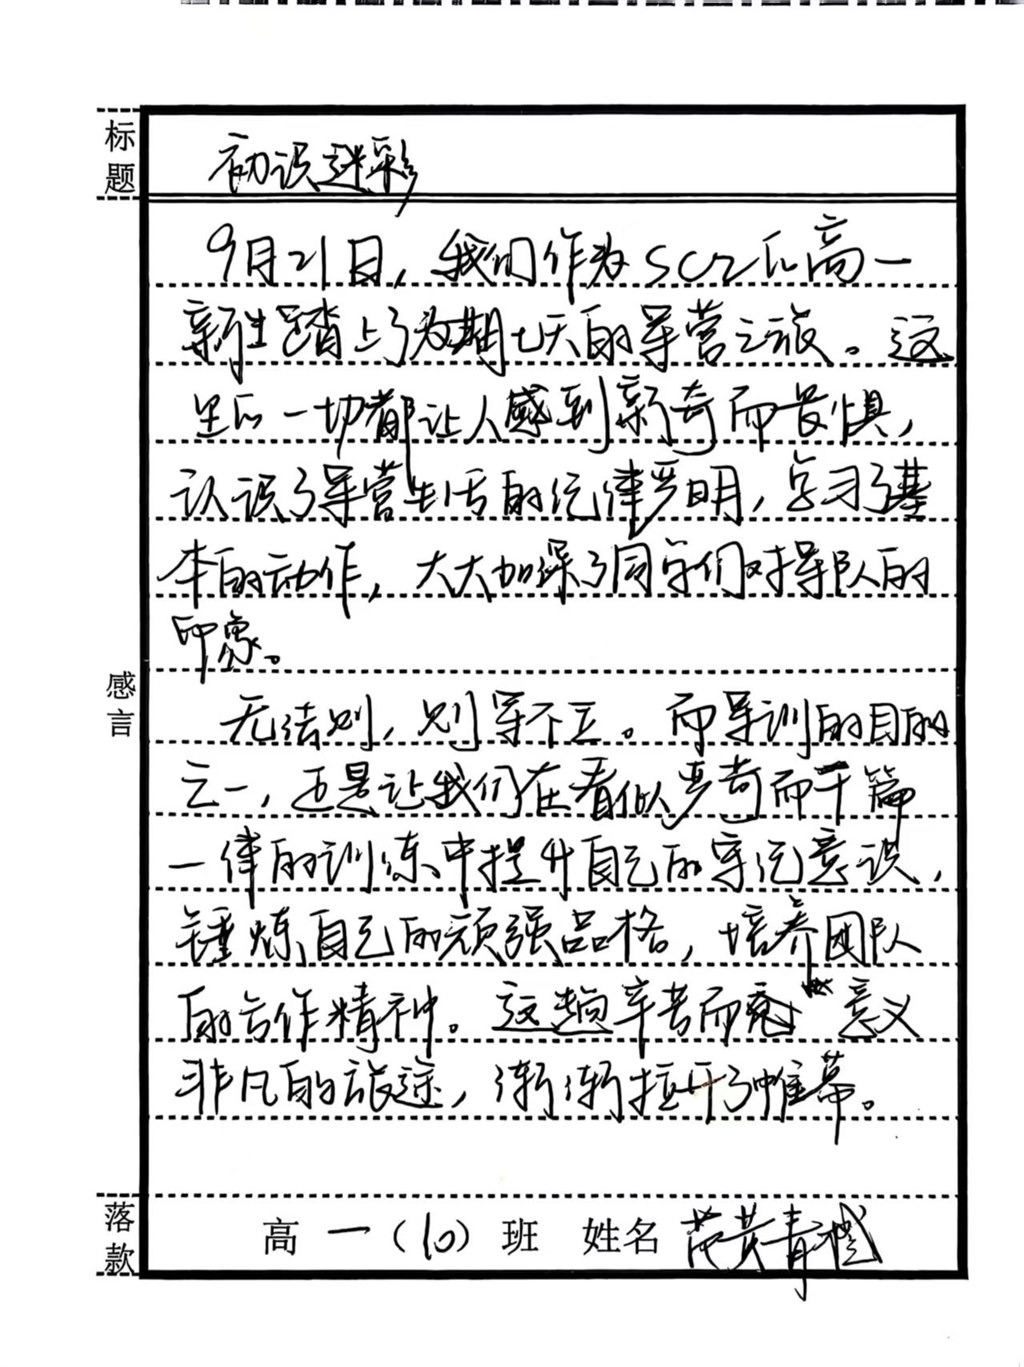 标题
初识迷彩
9月21日，我们作为scz的高一
新生踏上了为期七天的军营之旅。这
里的一切都让人感到新奇而畏惧，
认识了军营生活的纪律严明，学习了基
本的动作，大大加深了同学们对军队的
印象。
感言
无法则，则军不立。而军训的目的
之一，还是让我们在看似严苛而千篇
一律的训练中提升自己的守纪意识，
锤炼自己的顽强品格，培养团队
的合作精神。这趟辛苦而 意义
非凡的旅途，渐渐拉开了帷幕。
落款
高一（10）班 姓名 黄青